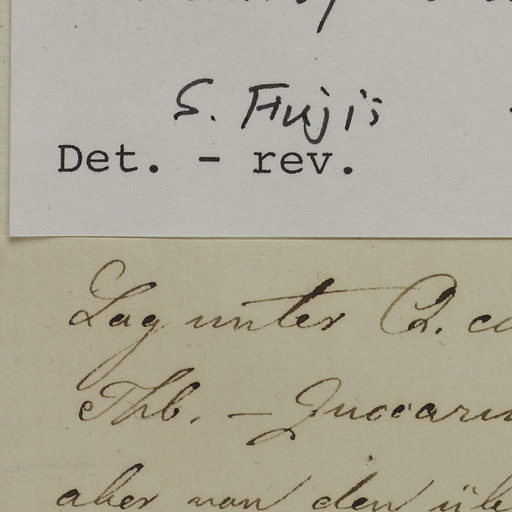 S. Fujii
Det. - rev.
Lag unter Q.
Thb. - Zuccarin
aber von den üb